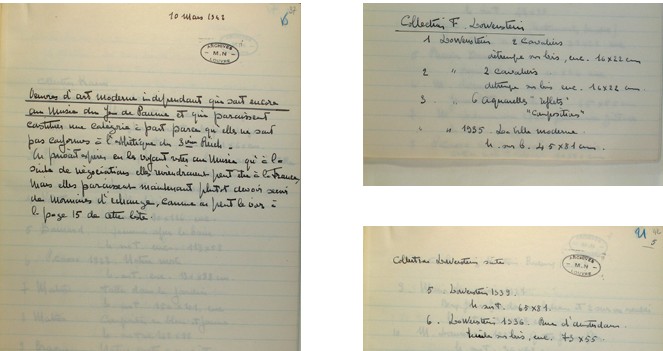 10 Mars 1942
ARCHIVES
M.N
LOUVRE
Oeuvres d'art moderne indépendant qui sont encore
au Musée du Jeu de Paume et qui paraissent
constituer une catégorie à part parce qu'elles ne sont
pas conformes à l'Esthétique du 3ème Reich.
On pouvait espérer en les voyant au Musée qu'à la
suite de négociations elles reviendraient peut être à la France,
Mais elles paraissent maintenant plutôt devoir servir
de Monnaies d'échange, comme on peut le voir à
la page 15 de cette liste.
Collection F. Lowenstein
1 Lowenstein 2 Cavaliers
détrempe sur bois, enc. 16x22 cm
2 " 2 cavaliers
détrempe sur bois enc. 16x22 cm
3 " 6 aquarelles "reflets"
"Compositions"
" " 1935. La Ville moderne
h. sur b. 45x81 cm.
21
5
ARCHIVES
M.N
LOUVRE
Collection Lowenstein suite
5 Lowenstein 1939.
h. sur t. 65x81.
6. Lowenstein 1936. Rue d'Amsterdam
sur bois, enc. 73x55